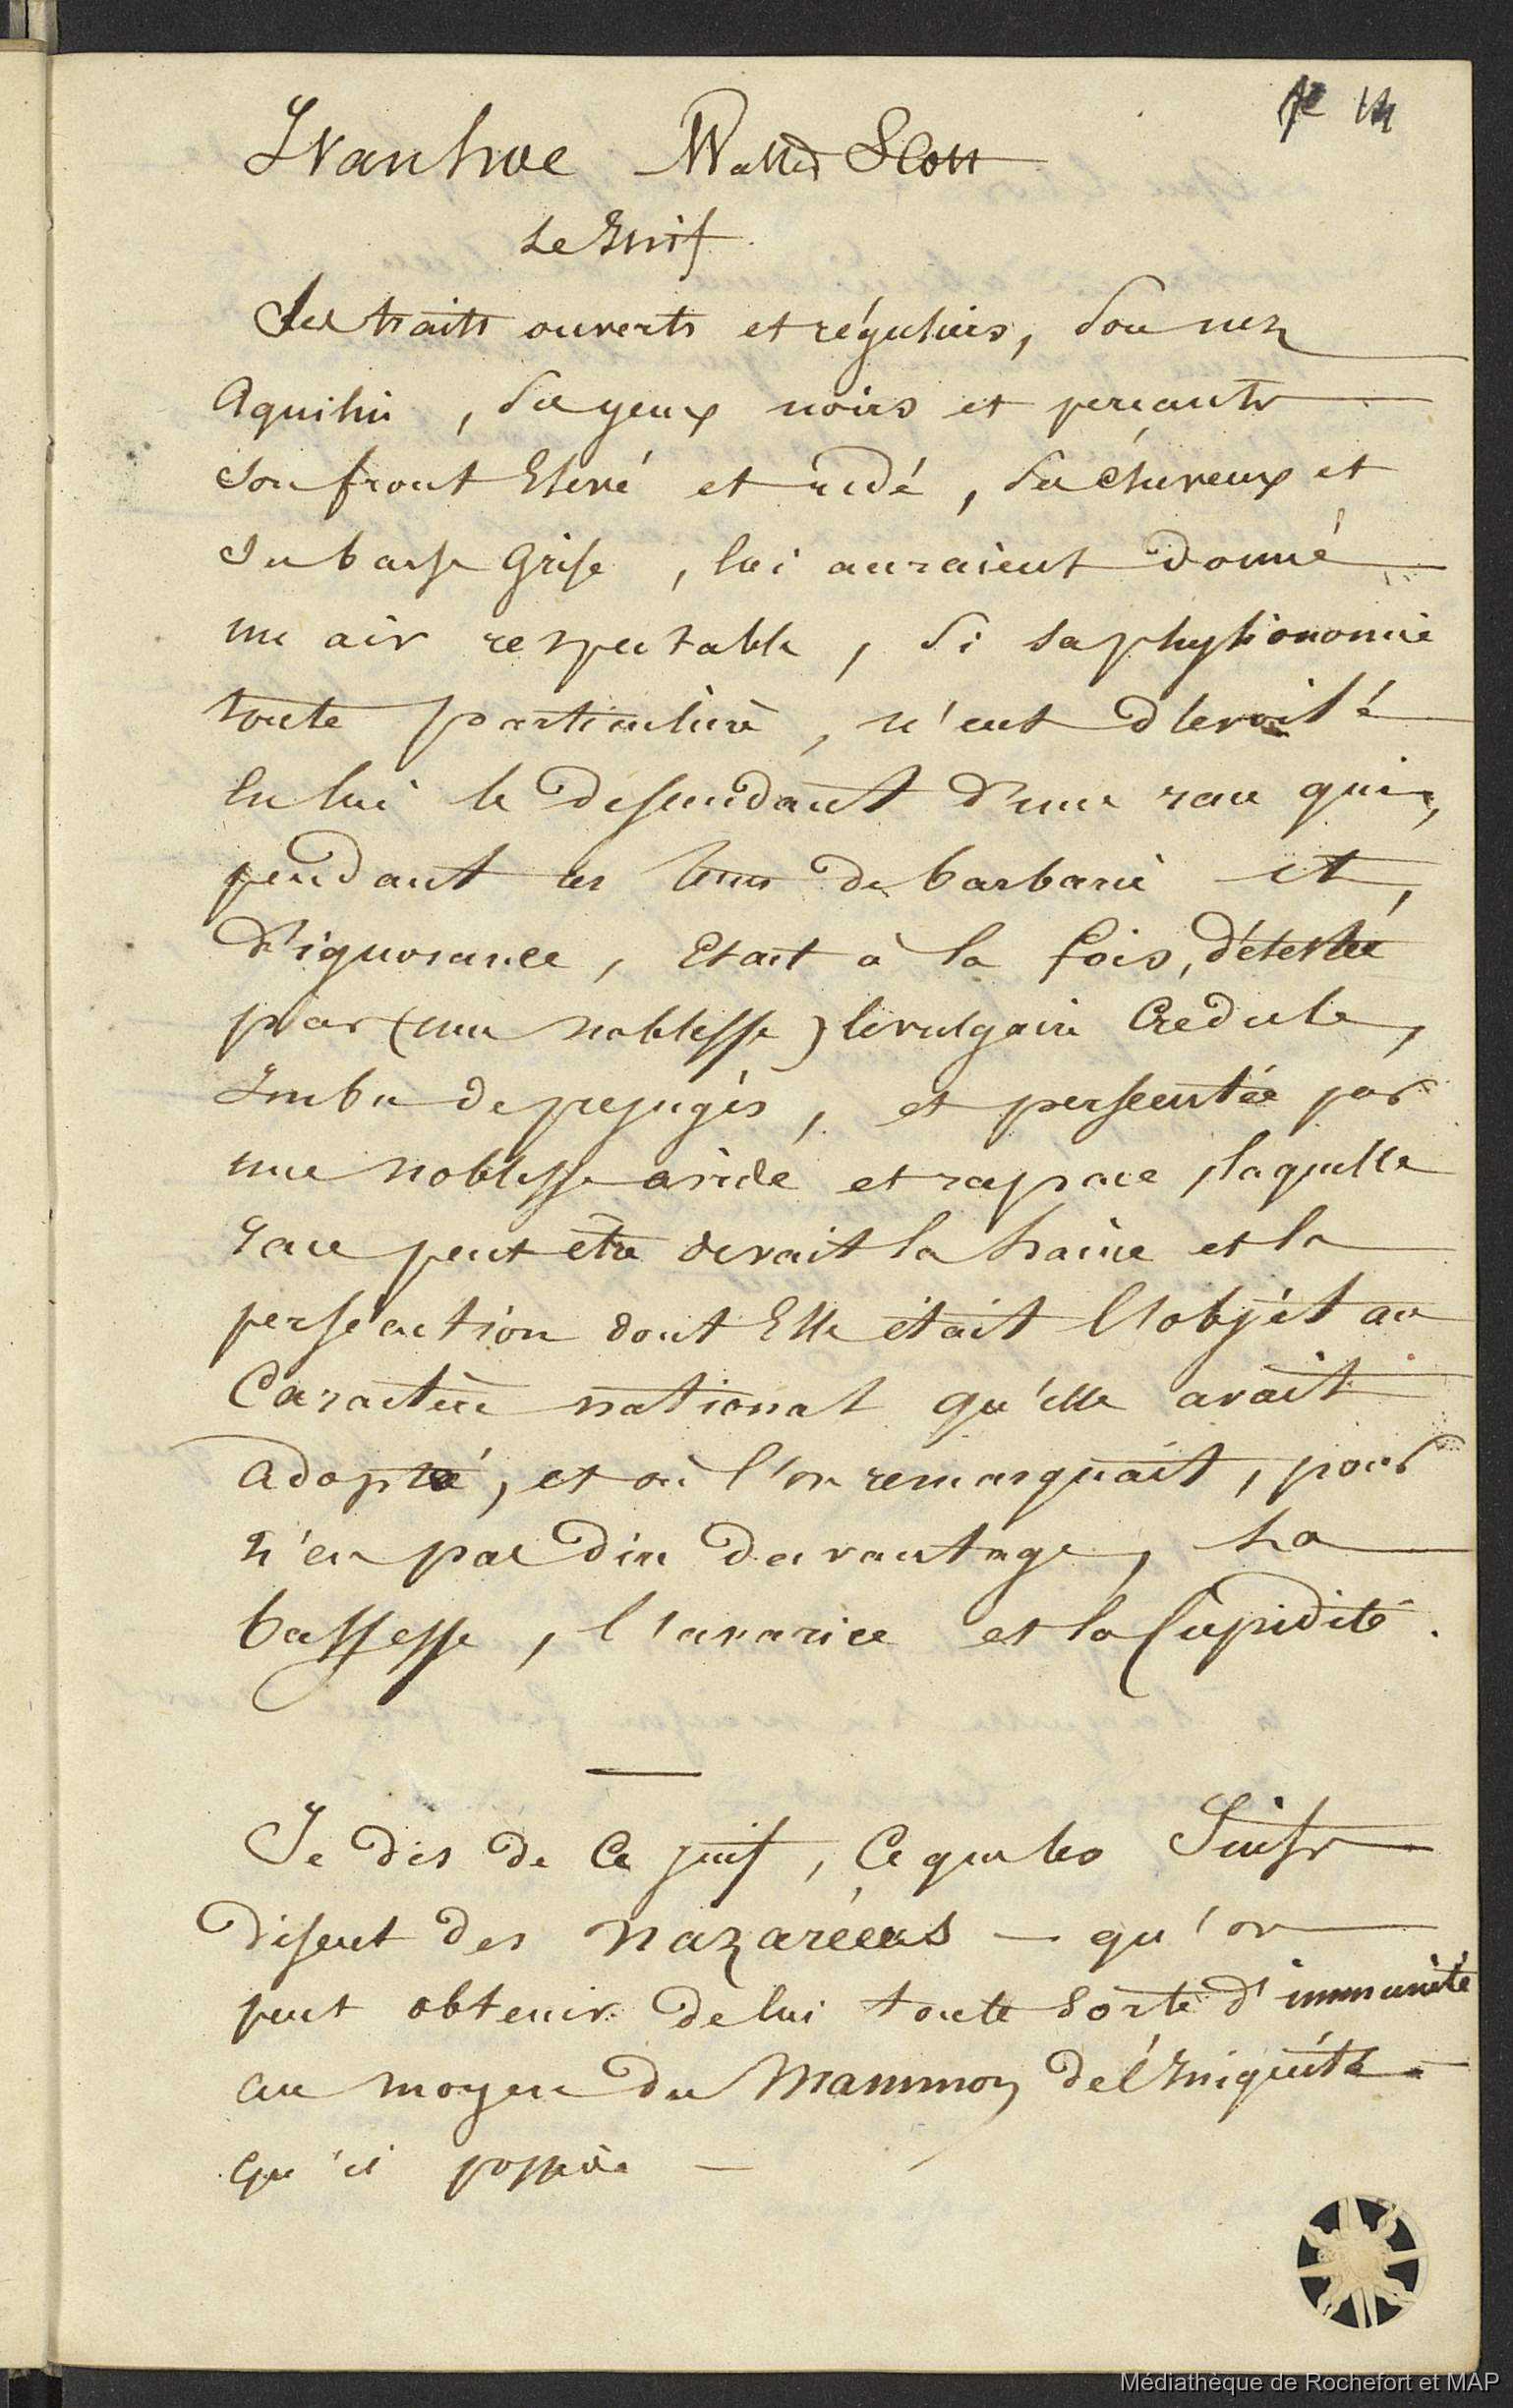 14
Ivanhoe Walter Scott
Le Juif
Ses traits ouverts et réguliers, Son nez
Aquilin, Ses yeux noirs et perçants
Son front Elevé et ridé, Ses cheveux et
Sa barbe Grise, lui auraient donné
un air respectable, Si sa physionomie
toute particulière, n'eut devoilé
En lui le descendant d'une race qui,
pendant ces tems de barbarie et,
d'ignorance, Etait à la fois, détestée
par (une noblesse) le vulgaire Credule,
Imbu de prejugés, et persecutée par
une noblesse avide et rapace, laquelle
race peut être devait la haine et la
perséction dont Elle était l'objèt au
Caractère national qu'elle avait
adopté, et où l'on remarquait, pour
n'en pas dire davantage, la
bassesse, l'avarice et la Cupidité.
Je dis de Ce juif, Ce que les Juifs
disent des Nazaréens — qu'on
peut obtenir de lui toute sorte d'immunité
au moyen du Mammon de l'Iniquité
qu'il possède —
Médiathèque de Rochefort et MAP